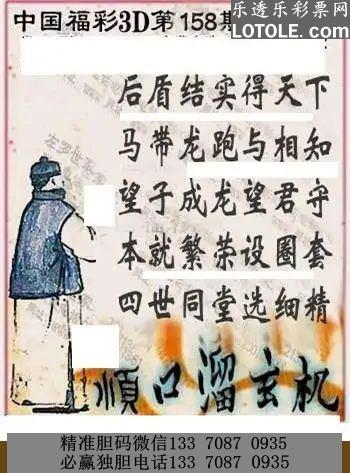 中国福彩3D第158期
乐透乐彩票网
LOTOLE.COM
后盾结实得天下
马带龙跑与相知
望子成龙望君守
本就繁荣设圈套
四世同堂选细精
順口溜玄机
精准胆码微信133 7087 0935
必赢独胆电话133 7087 0935